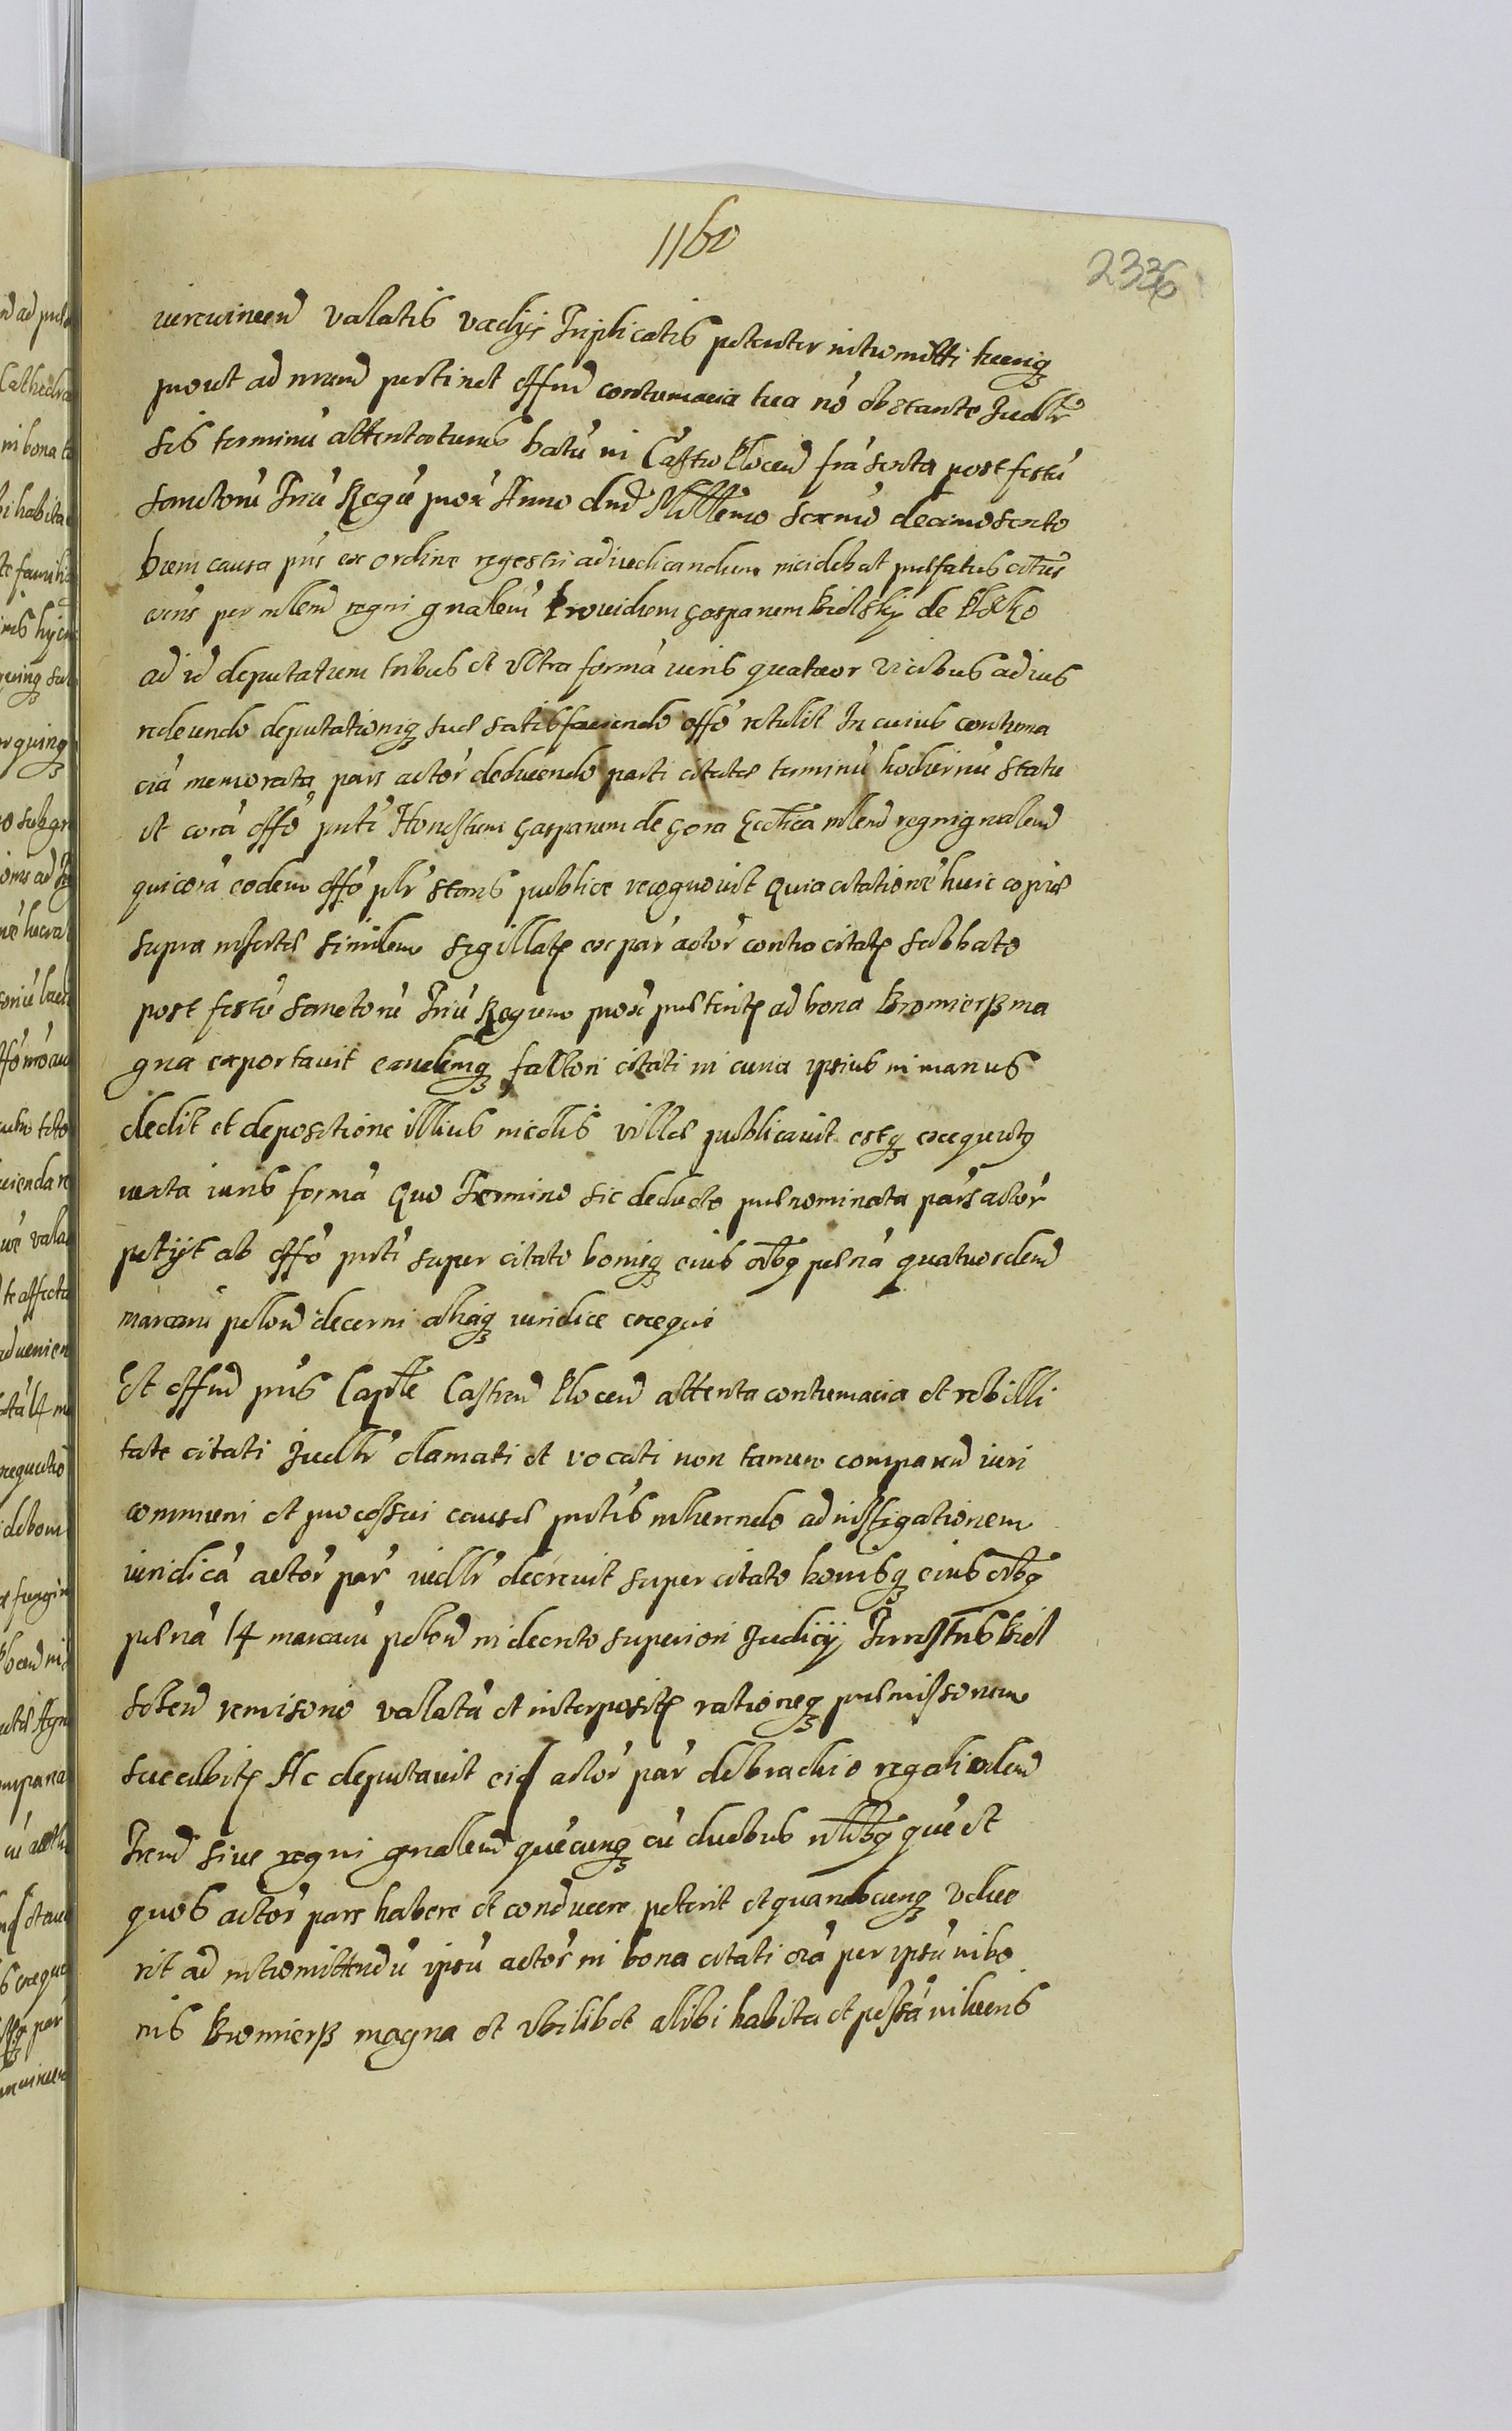 1160
2336
valatis vadijs Triplicatis potenter intromitti
prout ad nrum pertinet offm contumacia tua nō obstante Judlr
sis terminū attentaturus batū in Castro Plocen fra sexta post festū
Sanctorū Triū Regū prox Anno dni Millemo sexmo decimosexto
Dum causa pns ex ordine regestri adiudicandum incidebat pulsatus citus
eius per mlem regni gnalem Prouidum Gasparum Bielsky de Plocko
ad id deputatum tribus et vltra formā iuris quatuor vicibus ad ius
redeundo deputationiq suæ satisfaciendo offo retulit In cuius contuma
ciā memorata pars actor deducendo parti citatæ terminū hodiernū statu
it corā offo pnti Honestum Gasparum de Gora mlem regni gnalem
qui corā eodem offo plr stans publice recognouit Quia citationē huic copiæ
supra insertæ similem sigillatę ex par actor contra citatę sabbato
post festū Sanctorū Triū Regum prox præteritę ad bona Bromierz ma
gna exportauit eandemq factori citati in curia ipsius in manus
dedit et de positione illius medis villæ publicauit estq executę
iuxta iuris formā Quo Termino sic deducto prænominata pars actor
petijt ab offo pnti super citato bonisq eius oibq pænā quatuordem
marcarū polon decerni aliaq iuridice exequi
Et offm pns Capitle Castren Plocen attenta contumacia et rebilli
tate citati Judlr clamati et vocati non tamen comparen iuri
communi et processui causæ pntis inherendo ad instigationem
iuridicā actor par iudlr decreuit super citato bonisq eius oibq
pænā 14 marcarū polon in decreto superiori Judicij Terrestris Biel
scen remisorio valatā et interpositę rationeq præmissorum
succubitę Ac deputauit eid actor par de brachio regali mlem
Tren siue regni gnalem quēcunq cū duobus nlibq quē et
quos actor pars habere et conducere poterit et quandocunq volue
rit ad intromittendū ipsū actor in bona citati oīa per ipsū in bo
nis Bromierz magna et vbilibet alibi habita et possa in